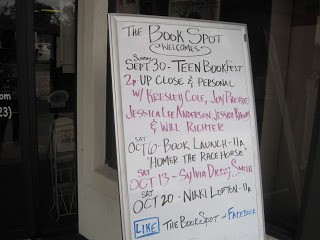 THE BOOK SPOT
WELCOMES
SUNDAY
SEPT 30 - TEEN BOOKFEST
2p UP CLOSE & PERSONAL
W/ KRESLEY COLE, JOY PREBLE
JESSICA LEE ANDERSON, JESSICA
& WILL RICHTER
SAT
OCT 6 - BOOK LAUNCH - 11A
"HOMER THE RACE HORSE"
SAT
OCT 13 - SYLVIA SMITH
SAT
OCT 20 - NIKKI LOFTON - 11A
LIKE THE BOOK SPOT ON FACEBOOK
com
23)